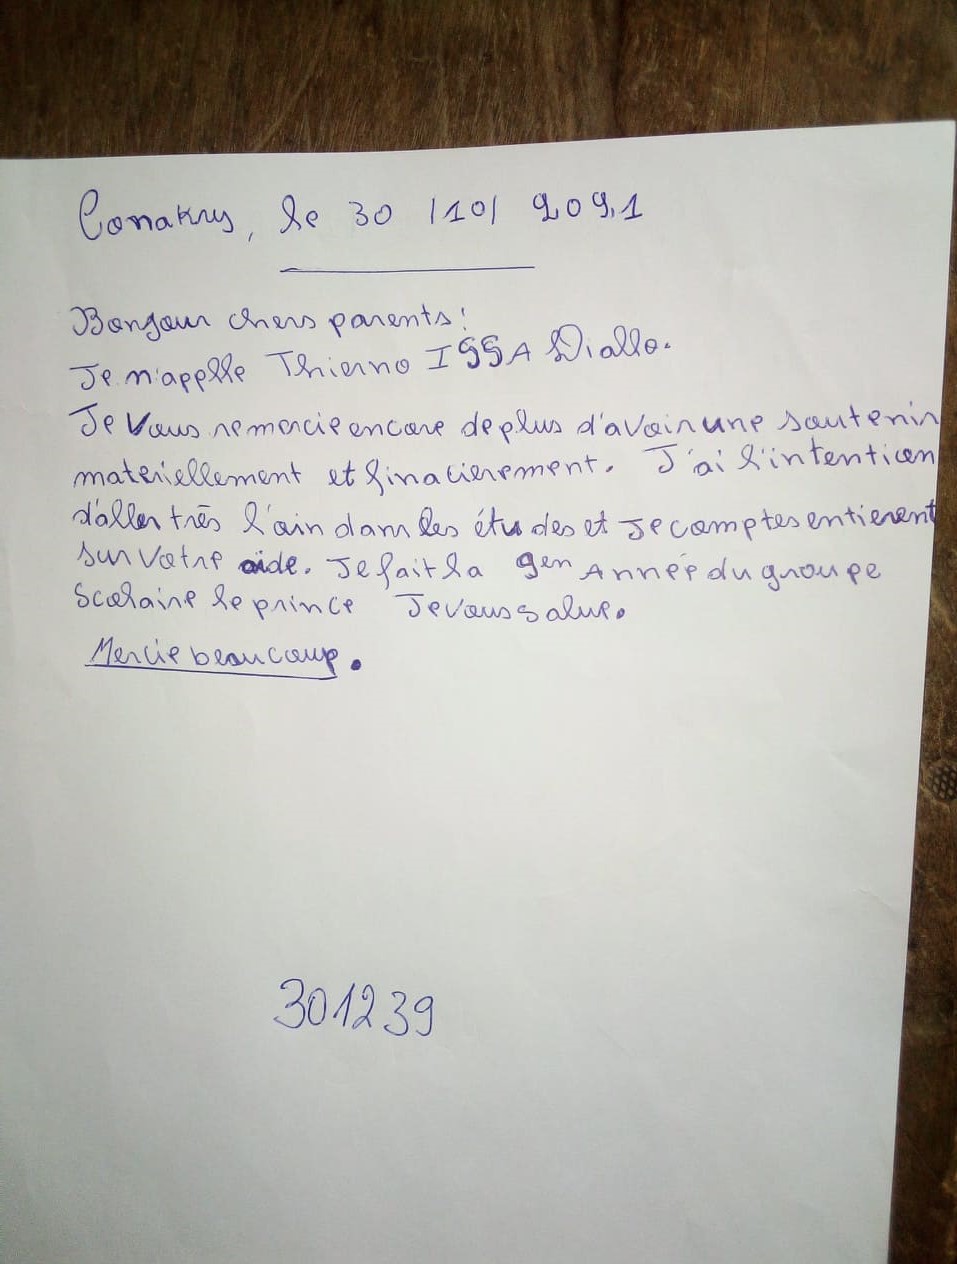 Conakry, le 30 /10/ 2021
Bonjour chers parents!
Je m'appelle Thierno ISSA Diallo.
Je vous remercie encore de plus d'avoir une soutenir
materiellement et finacierement. J'ai l'intention
d'aller très l'oin dans les études et Je comptes entierent
sur votre aide. Je fait la 9em Année du groupe
Scolaire le prince Je vous salue.
Mercie beaucoup.
301239